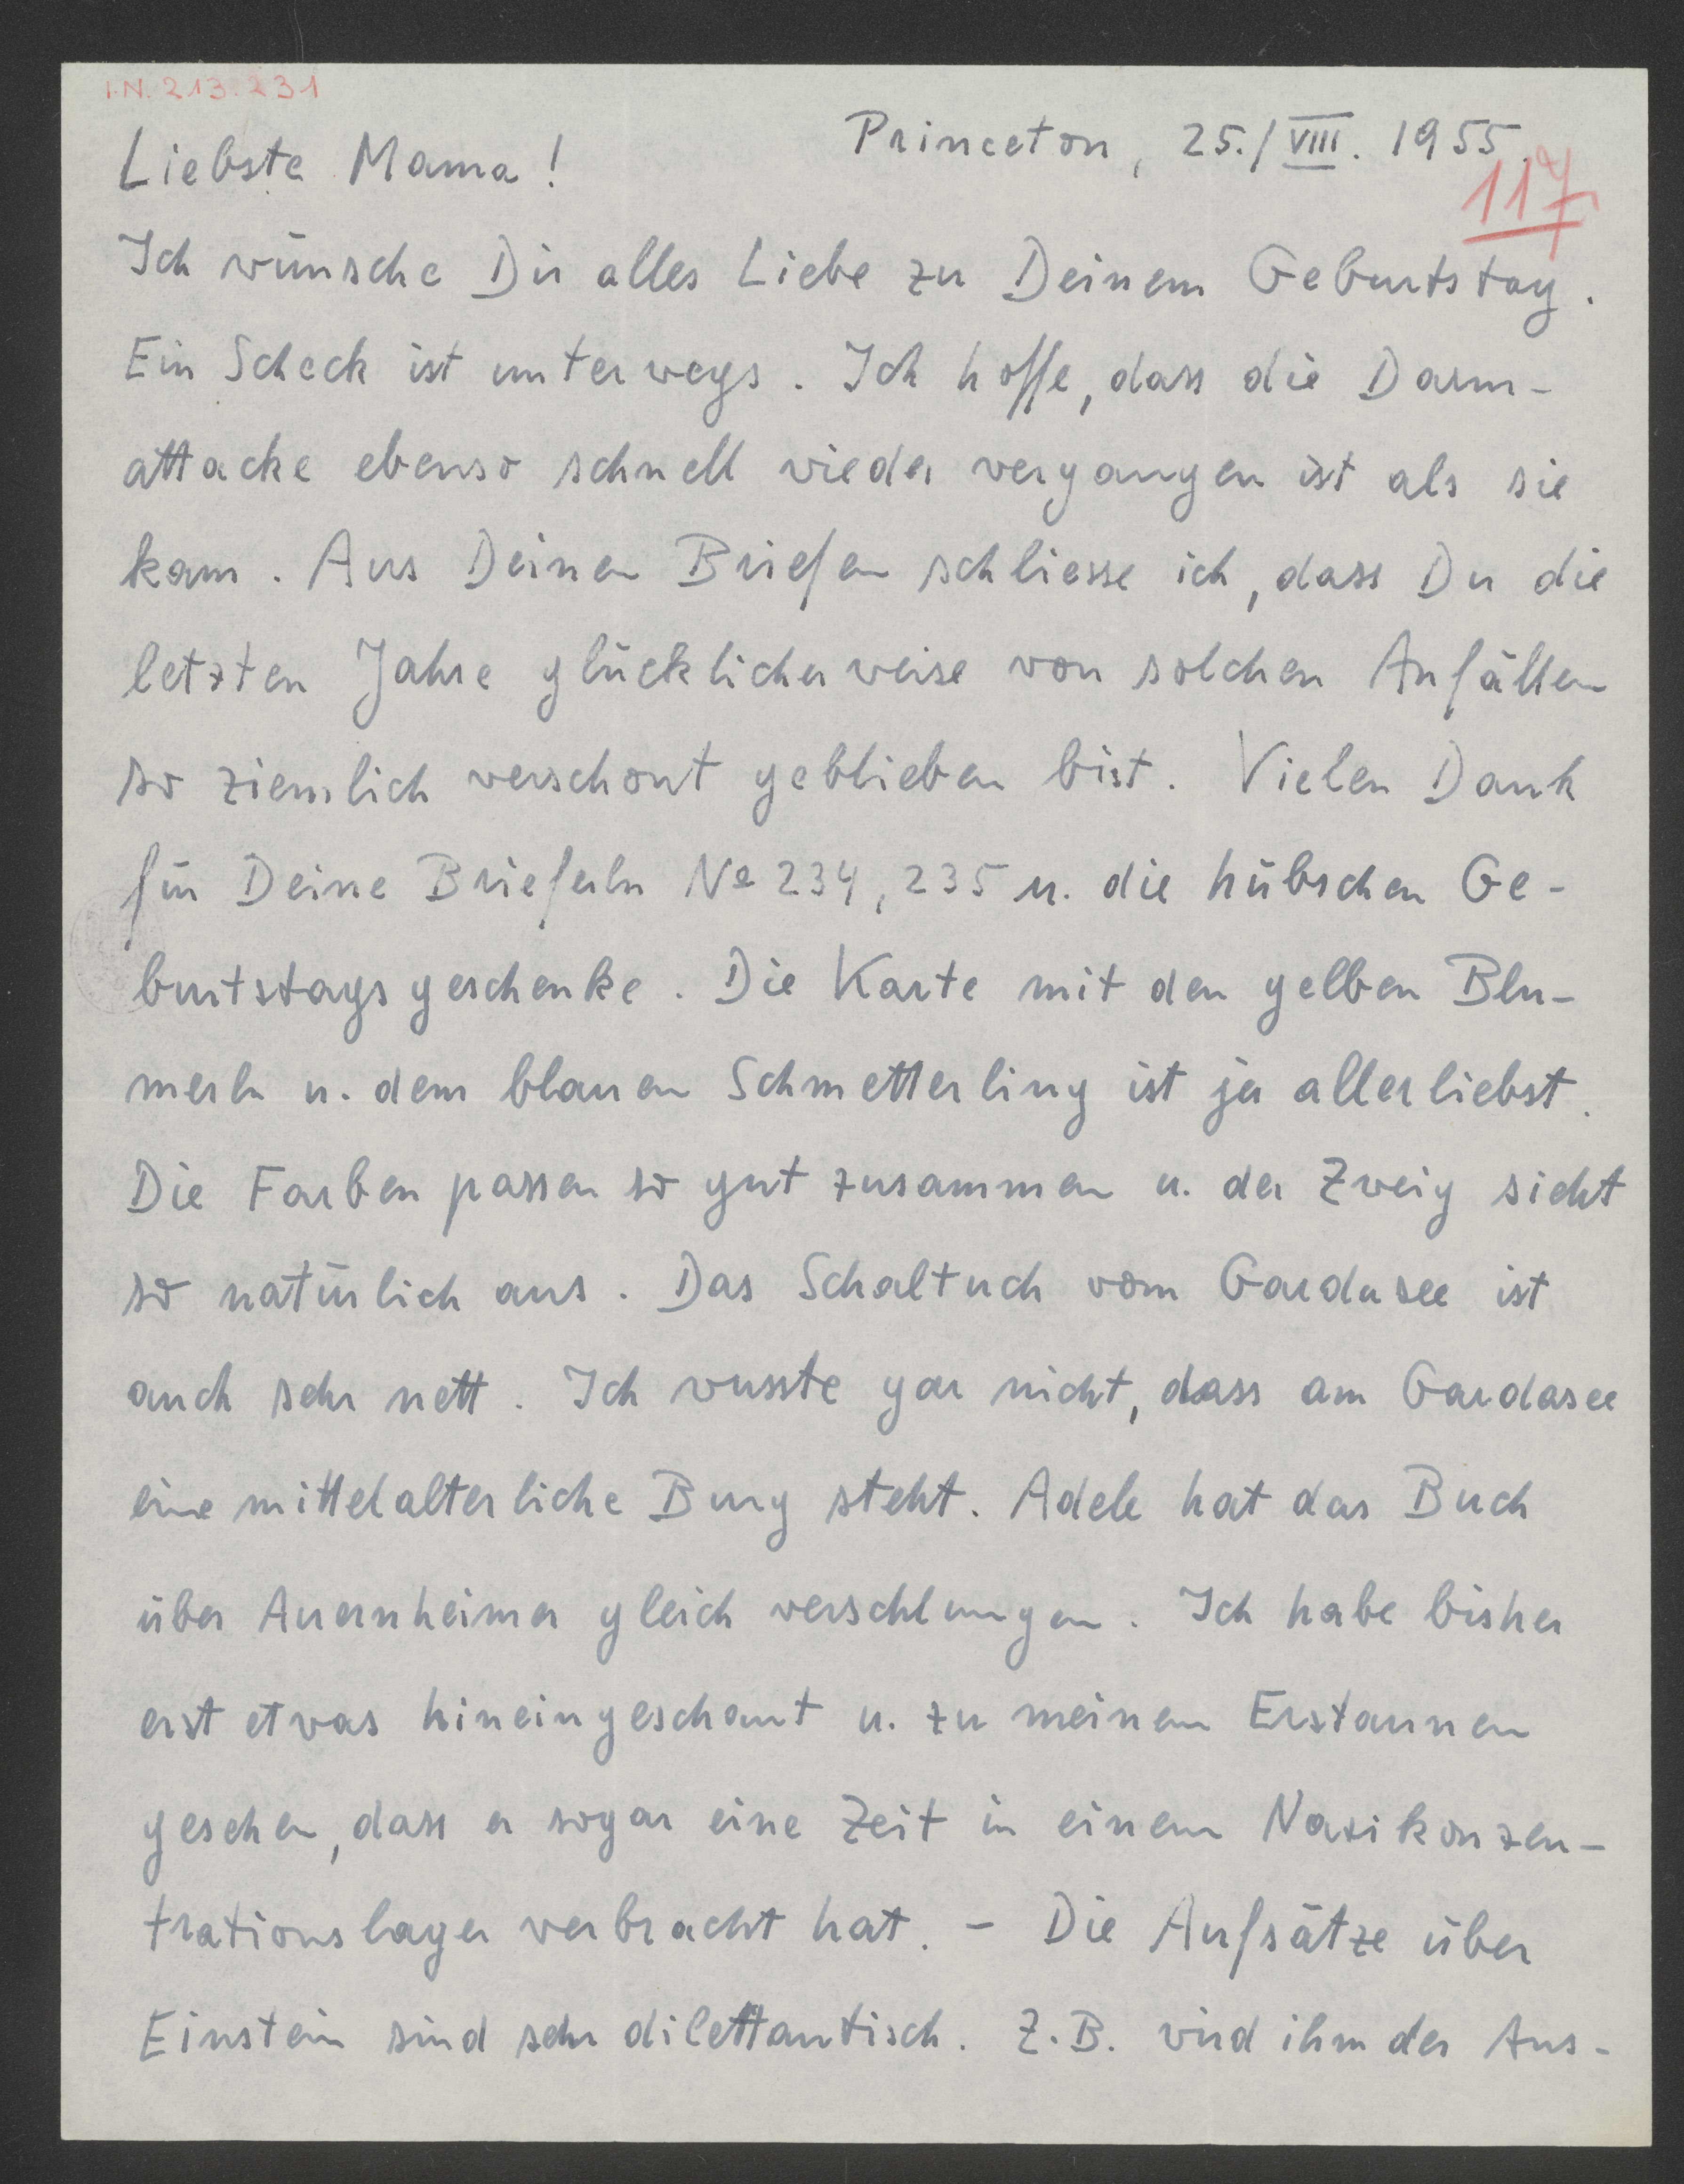 I.N. 213.231
Princeton, 25./VIII. 1955.
117
Liebste Mama!
Ich wünsche Dir alles Liebe zu Deinem Geburtstag.
Ein Scheck ist unterwegs. Ich hoffe, dass die Darm-
attacke ebenso schnell wieder vergangen ist als sie
kam. Aus Deinen Briefen schliesse ich, dass Du die
letzten Jahre glücklicherweise von solchen Anfällen
so ziemlich verschont geblieben bist. Vielen Dank
für Deine Brieferln No 234, 235 u. die hübschen Ge-
burtstagsgeschenke. Die Karte mit den gelben Blu-
merln u. dem blauen Schmetterling ist ja allerliebst.
Die Farben passen so gut zusammen u. der Zweig sieht
so natürlich aus. Das Schaltuch vom Gardasee ist
auch sehr nett. Ich wusste gar nicht, dass am Gardasee
eine mittelalterliche Burg steht. Adele hat das Buch
über Auernheimer gleich verschlungen. Ich habe bisher
erst etwas hineingeschaut u. zu meinem Erstaunen
gesehen, dass er sogar eine Zeit in einem Nazikonzen-
trationslager verbracht hat. - Die Aufsätze über
Einstein sind sehr dilettantisch. Z.B. wird ihm der Aus-